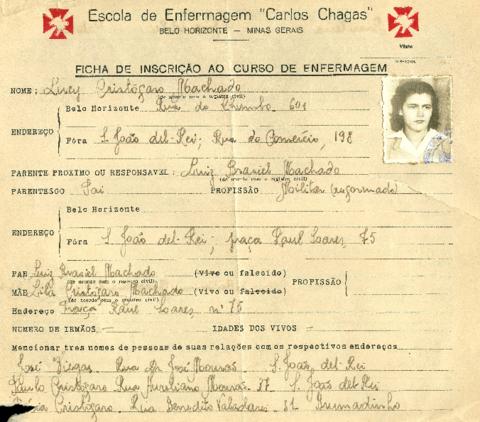 Escola de Enfermagem "Carlos Chagas"
BELO HORIZONTE — MINAS GERAIS
FICHA DE INSCRIÇÃO AO CURSO DE ENFERMAGEM
NOME: Lucy Cristófaro Machado
Belo Horizonte Rua do Chumbo 601
ENDEREÇO
Fóra S. João del-Rei; Rua do Comércio, 198
PARENTE PROXIMO OU RESPONSAVEL: Luiz Machado
PARENTESCO Pai PROFISSÃO Militar (reformado)
Belo Horizonte
ENDEREÇO
Fóra S. João del-Rei; praça Raul Soares 75
PAE Luiz Machado (vivo ou falecido)
PROFISSÃO
MÃE Cristófaro Machado (viva ou falecida)
Endereço Praça Raul Soares nº 75
NUMERO DE IRMÃOS IDADES DOS VIVOS
Mencionar tres nomes de pessoas de suas relações com os respectivos endereços
José Viegas Rua José S. João del-Rei
Paulo Cristófaro Rua Aureliano 87 S. João del Rei
Cristófaro Rua Benedito Valadares 31 Brumadinho